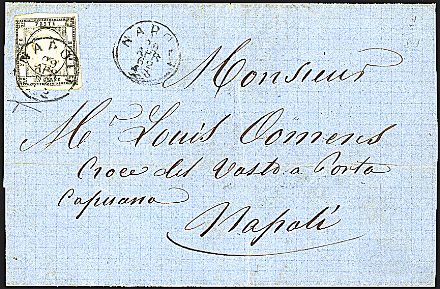 NAPOLI
Monsieur
Mr Louis Oomens
Croce del Vasto a Porta
Capuana
Napoli